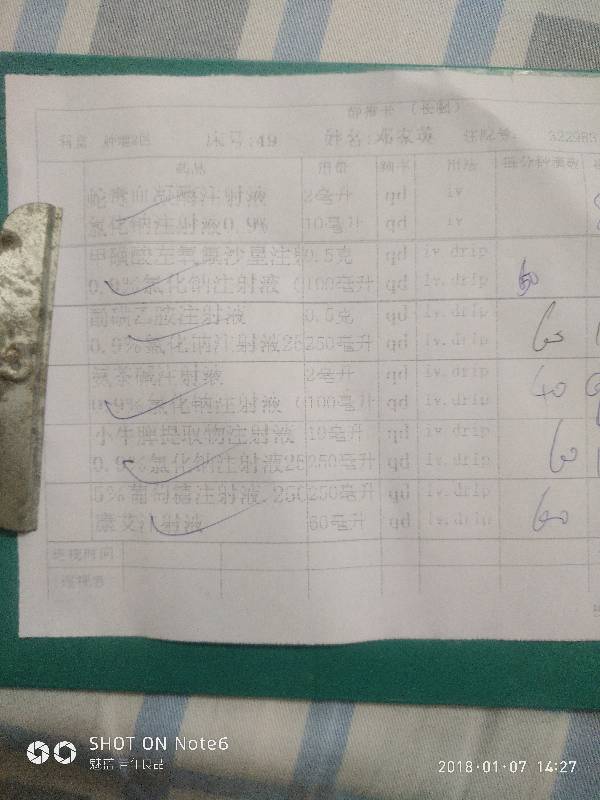 静推卡 （长期）
科室 肿瘤8区 床号:49 姓名:邓家英 住院号: 322983
药品 用量 频率 用法 每分钟滴数
蛇毒血凝酶注射液 2毫升 qd iv
氯化钠注射液0.9% 10毫升 qd iv
甲磺酸左氧氟沙星注射 0.5克 qd iv.drip
0.9%氯化钠注射液 (100毫升 qd iv.drip 60
酚磺乙胺注射液 0.5克 qd iv.drip
0.9%氯化钠注射液25 250毫升 qd iv.drip 60
氨茶碱注射液 2毫升 qd iv.drip
0.9%氯化钠注射液 (100毫升 qd iv.drip 40
小牛脾提取物注射液 10毫升 qd iv.drip
0.9%氯化钠注射液25 250毫升 qd iv.drip 60
5%葡萄糖注射液.25 250毫升 qd iv.drip
康艾注射液 60毫升 qd iv.drip 60
巡视时间
巡视者
SHOT ON Note6
魅蓝 千锤良品
2018.01.07 14:27